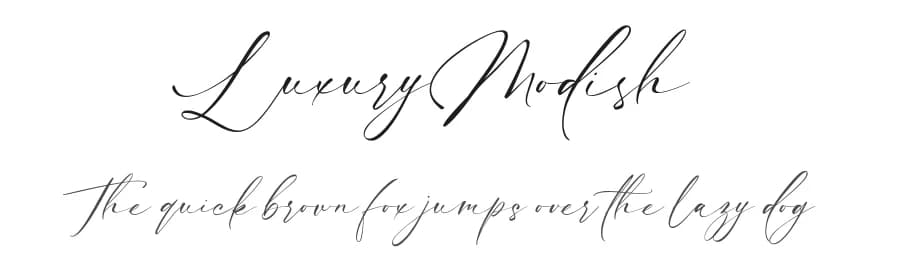 Luxury Modish
The quick brown fox jumps over the lazy dog